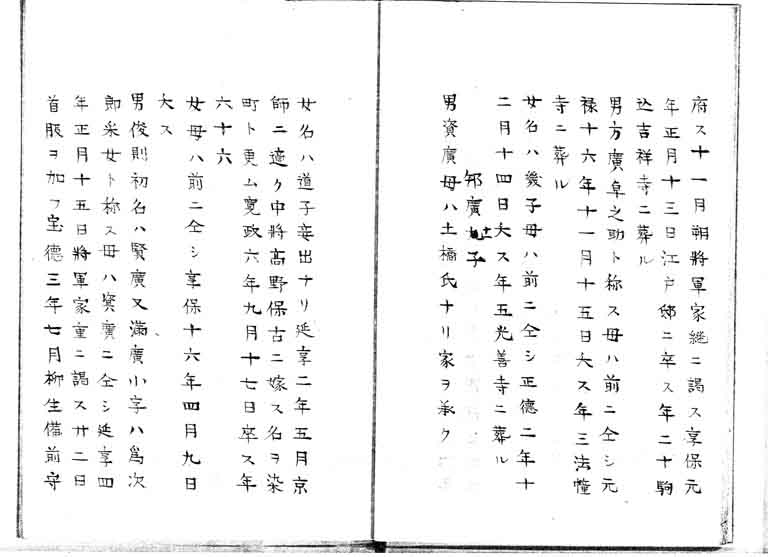 府ス十一月朔將軍家継ニ謁ス享保元
年正月十三日江戸邸ニ卒ス年二十駒
込吉祥寺ニ葬ル
男方廣卓之助ト称ス母ハ前ニ仝シ元
禄十六年十一月十五日夭ス年三法幢
寺ニ葬ル
女名ハ幾子母ハ前ニ仝シ正德二年十
二月十四日夭ス年五光善寺ニ葬ル
邦廣十一子
男資廣母ハ土橋氏ナリ家ヲ承ク
女名ハ道子妾出ナリ延享二年五月京
師ニ適ク中將髙野保古ニ嫁ス名ヲ染
町ト更ム寛政六年九月十七日卒ス年
六十六
女母ハ前ニ仝シ享保十六年四月九日
夭ス
男俊則初名ハ賢廣又滿廣小字ハ爲次
郎采女ト称ス母ハ資廣ニ仝シ延享四
年正月十五日將軍家重ニ謁ス廿二日
首服ヲ加フ宝德三年七月柳生備前守